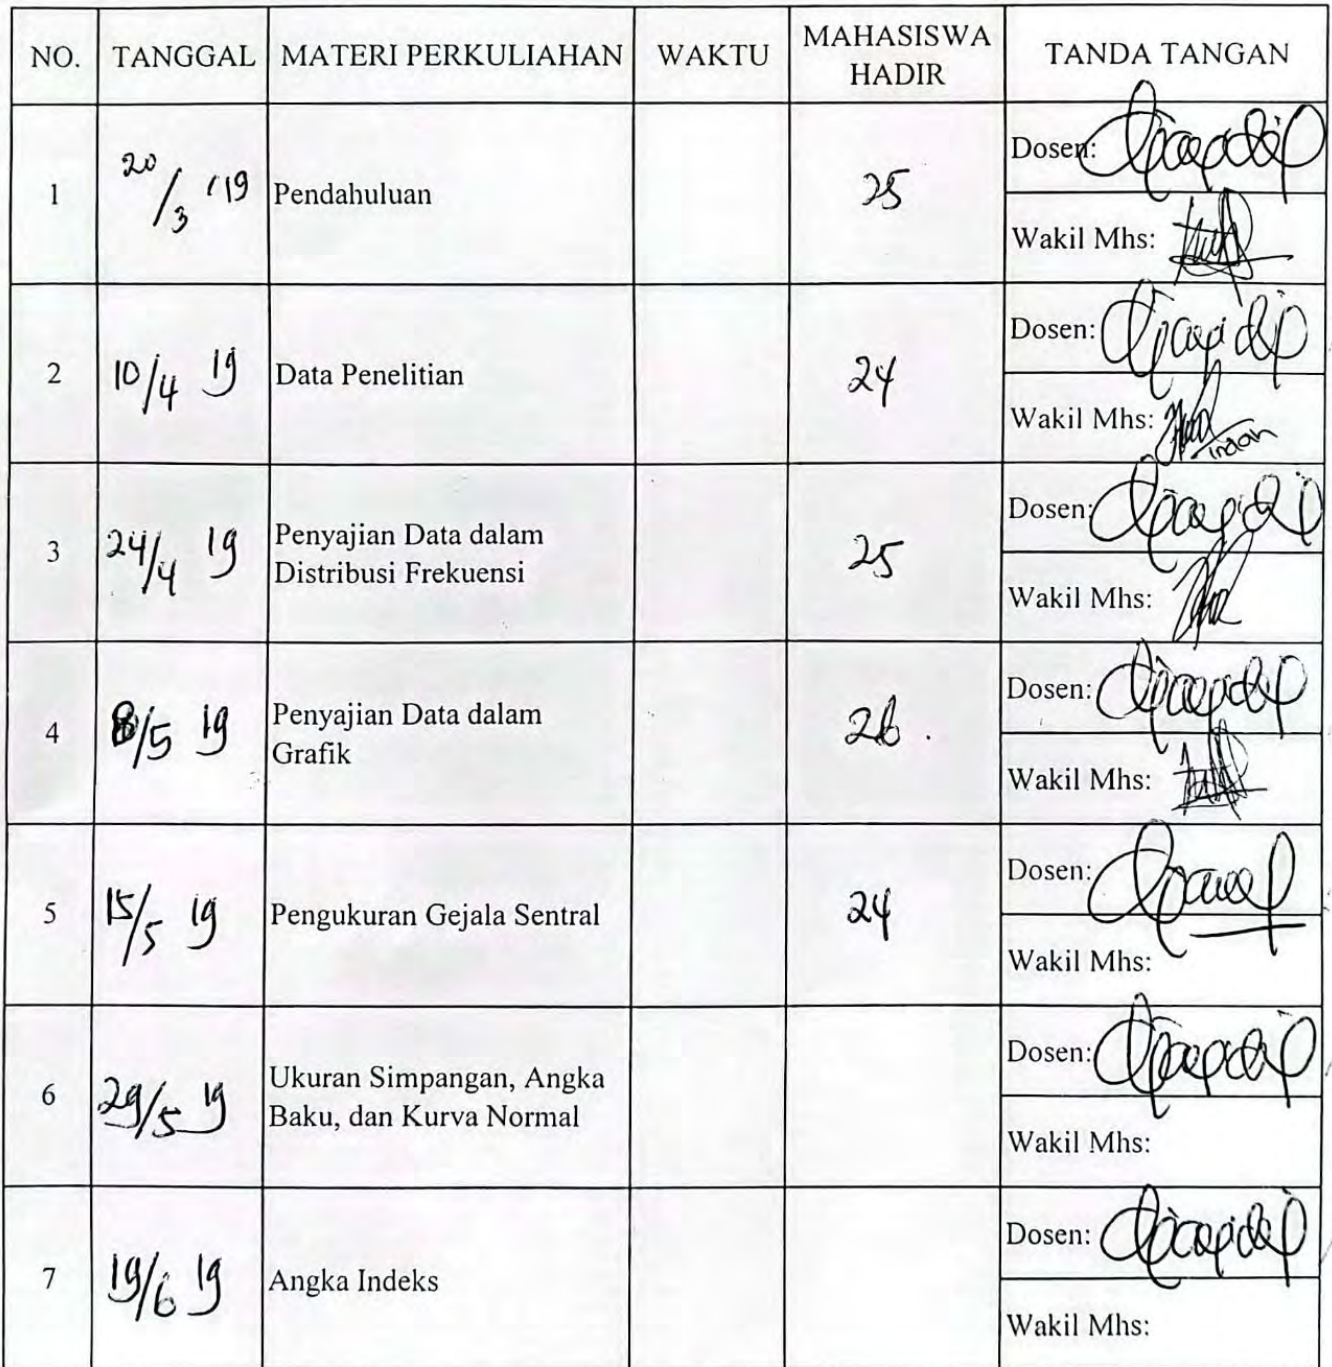 NO. TANGGAL MATERI PERKULIAHAN WAKTU MAHASISWA HADIR TANDA TANGAN
1 20/3 '19 Pendahuluan 25 Dosen:
Wakil Mhs:
2 10/4 19 Data Penelitian 24 Dosen:
Wakil Mhs:
3 24/4 19 Penyajian Data dalam
Distribusi Frekuensi 25 Dosen:
Wakil Mhs:
4 8/5 19 Penyajian Data dalam
Grafik Dosen:
Wakil Mhs:
5 15/5 19 Pengukuran Gejala Sentral 24 Dosen:
Wakil Mhs:
6 29/5 19 Ukuran Simpangan, Angka
Baku, dan Kurva Normal Dosen:
Wakil Mhs:
7 19/6 19 Angka Indeks Dosen:
Wakil Mhs: